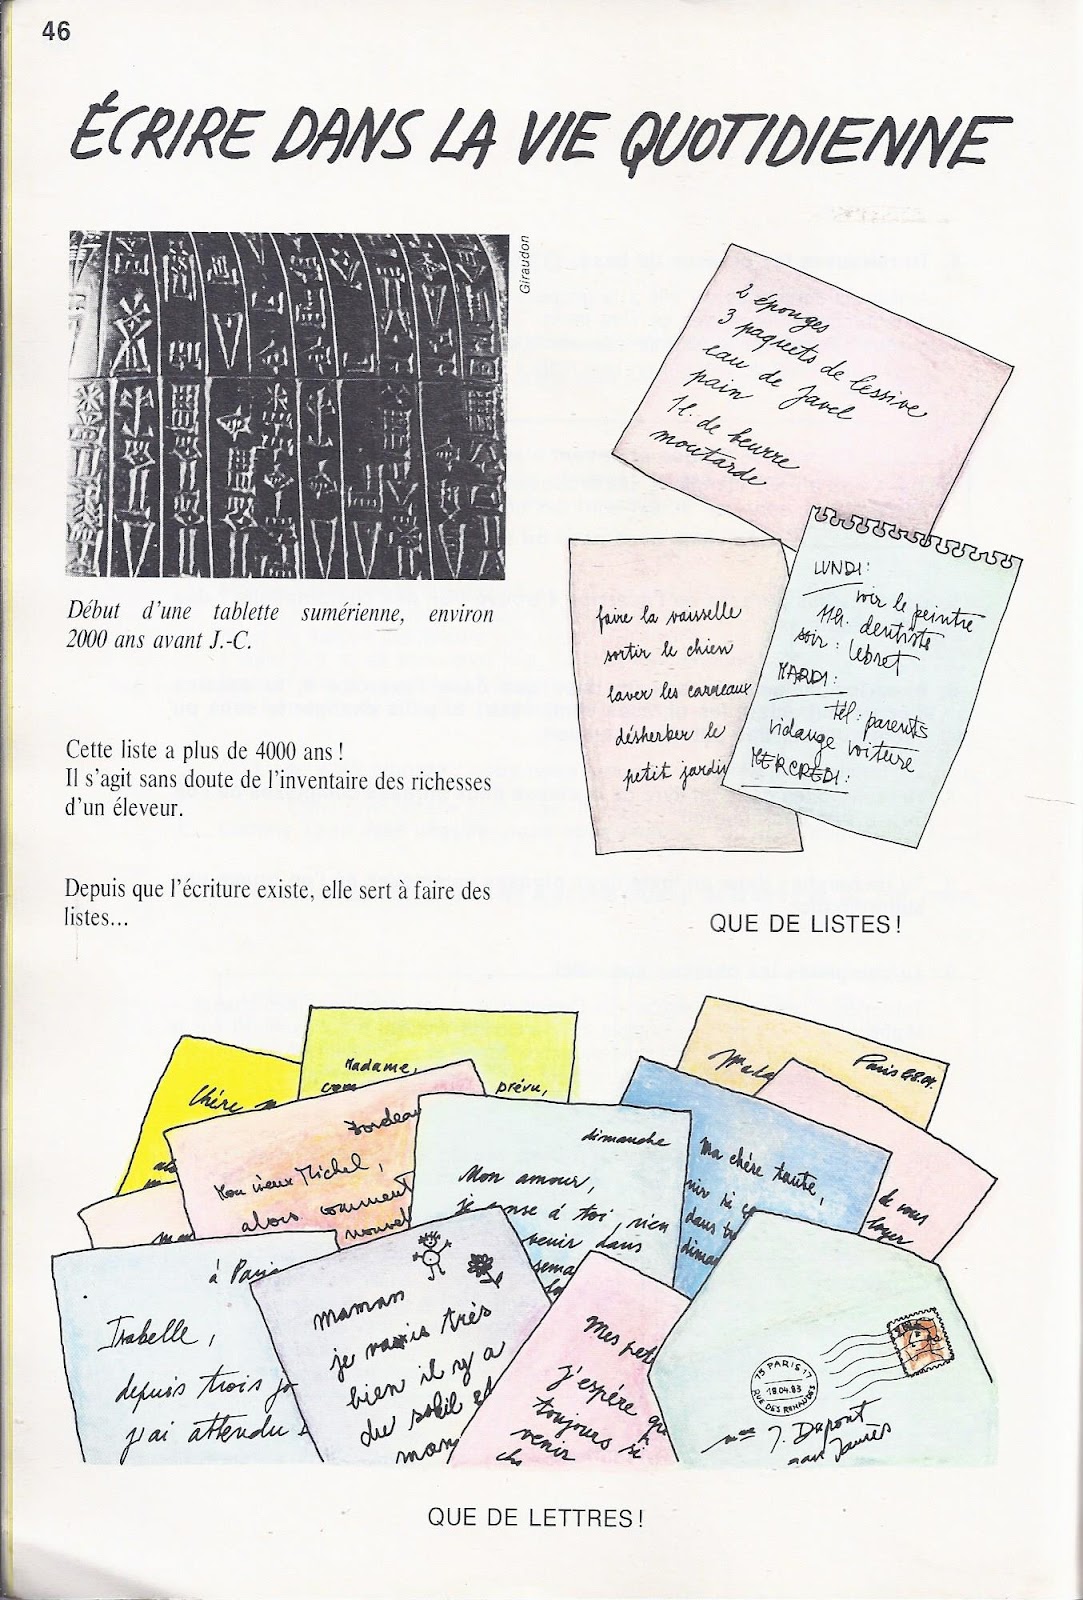 46
ÉCRIRE DANS LA VIE QUOTIDIENNE
Giraudon
Début d'une tablette sumérienne, environ
2000 ans avant J.-C.
Cette liste a plus de 4000 ans !
Il s'agit sans doute de l'inventaire des richesses
d'un éleveur.
Depuis que l'écriture existe, elle sert à faire des
listes...
2 éponges
3 paquets de lessive
eau de Javel
pain
1l. de beurre
moutarde
faire la vaisselle
sortir le chien
laver les carreaux
désherber le
petit jardin
LUNDI :
voir le peintre
11h. dentiste
soir : Lebret
MARDI :
tél : parents
vidange voiture
MERCREDI :
QUE DE LISTES !
Chère
Madame,
prévu,
Mon vieux Michel,
alors comment
dimanche
Mon amour,
à toi, rien
venir dans
Paris
Ma chère tante,
venir si
dans
de vous
à Paris
Isabelle,
depuis trois jo
j'ai attendu
maman
je vais très
bien il y a
du soleil et
mon
Mes pet
j'espère qu
toujours si
venir
75 PARIS 17
18.04.83
RUE DES RENAUDES
Mme J. Dupont
Jaurès
QUE DE LETTRES !